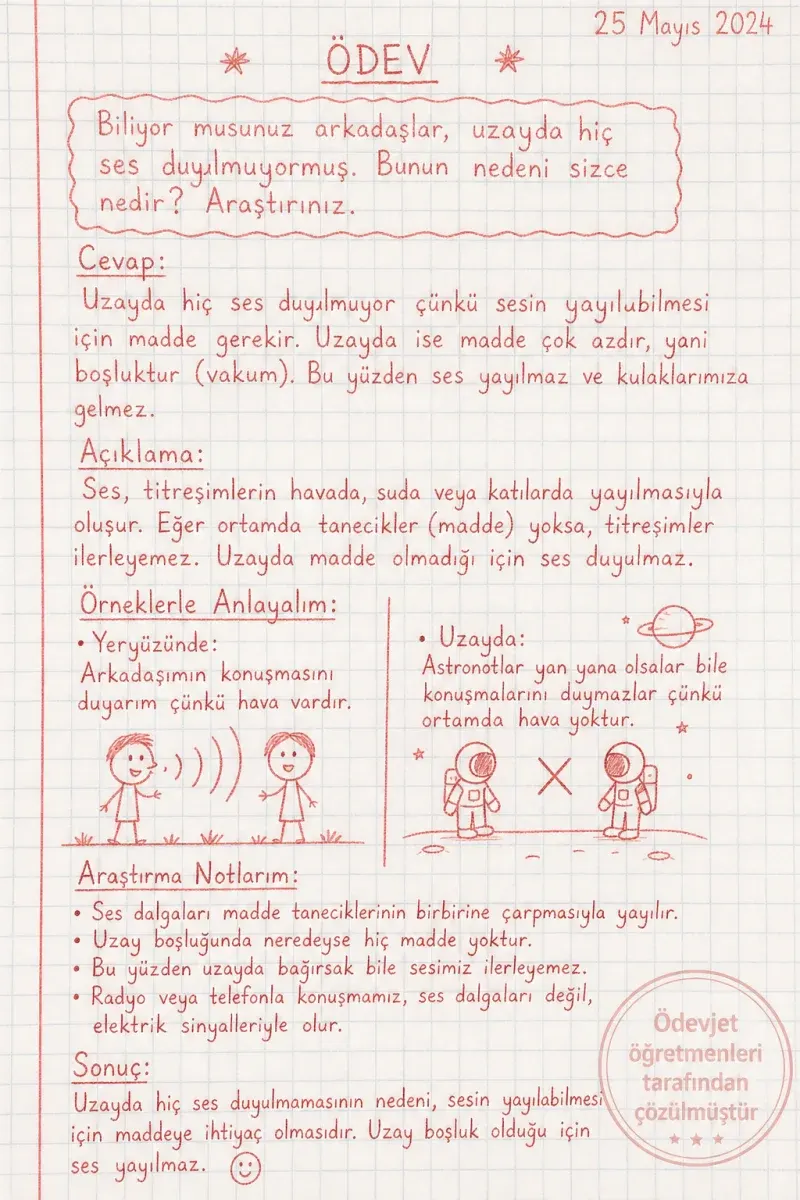 25 Mayıs 2024
ÖDEV
Biliyor musunuz arkadaşlar, uzayda hiç
ses duyulmuyormuş. Bunun nedeni sizce
nedir? Araştırınız.
Cevap:
Uzayda hiç ses duyulmuyor çünkü sesin yayılubilmesi
için madde gerekir. Uzayda ise madde çok azdır, yani
boşluktur (vakum). Bu yüzden ses yayılmaz ve kulaklarımıza
gelmez.
Açıklama:
Ses, titreşimlerin havada, suda veya katılarda yayılmasıyla
oluşur. Eğer ortamda tanecikler (madde) yoksa, titreşimler
ilerleyemez. Uzayda madde olmadığı için ses duyulmaz.
Örneklerle Anlayalım:
• Yeryüzünde:
Arkadaşımın konuşmasını
duyarım çünkü hava vardır.
• Uzayda:
Astronotlar yan yana olsalar bile
konuşmalarını duymazlar çünkü
ortamda hava yoktur.
Araştırma Notlarım:
• Ses dalgaları madde taneciklerinin birbirine çarpmasıyla yayılır.
• Uzay boşluğunda neredeyse hiç madde yoktur.
• Bu yüzden uzayda bağırsak bile sesimiz ilerleyemez.
• Radyo veya telefonla konuşmamız, ses dalgaları değil,
elektrik sinyalleriyle olur.
Sonuç:
Uzayda hiç ses duyulmamasının nedeni, sesin yayılabilmesi
için maddeye ihtiyaç olmasıdır. Uzay boşluk olduğu için
ses yayılmaz.
Ödevjet
öğretmenleri
tarafından
çözülmüştür